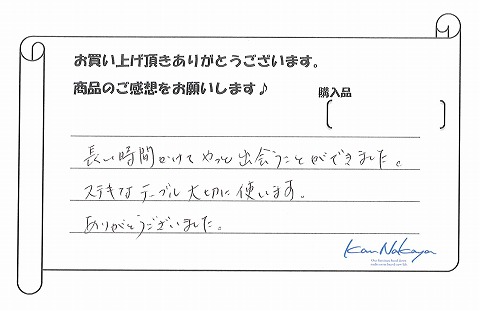 お買い上げ頂きありがとうございます。
商品のご感想をお願いします♪
購入品
長い時間かけてやっと出会うことができました。
ステキなテーブル大切に使います。
ありがとうございました。
Kan Nakaya